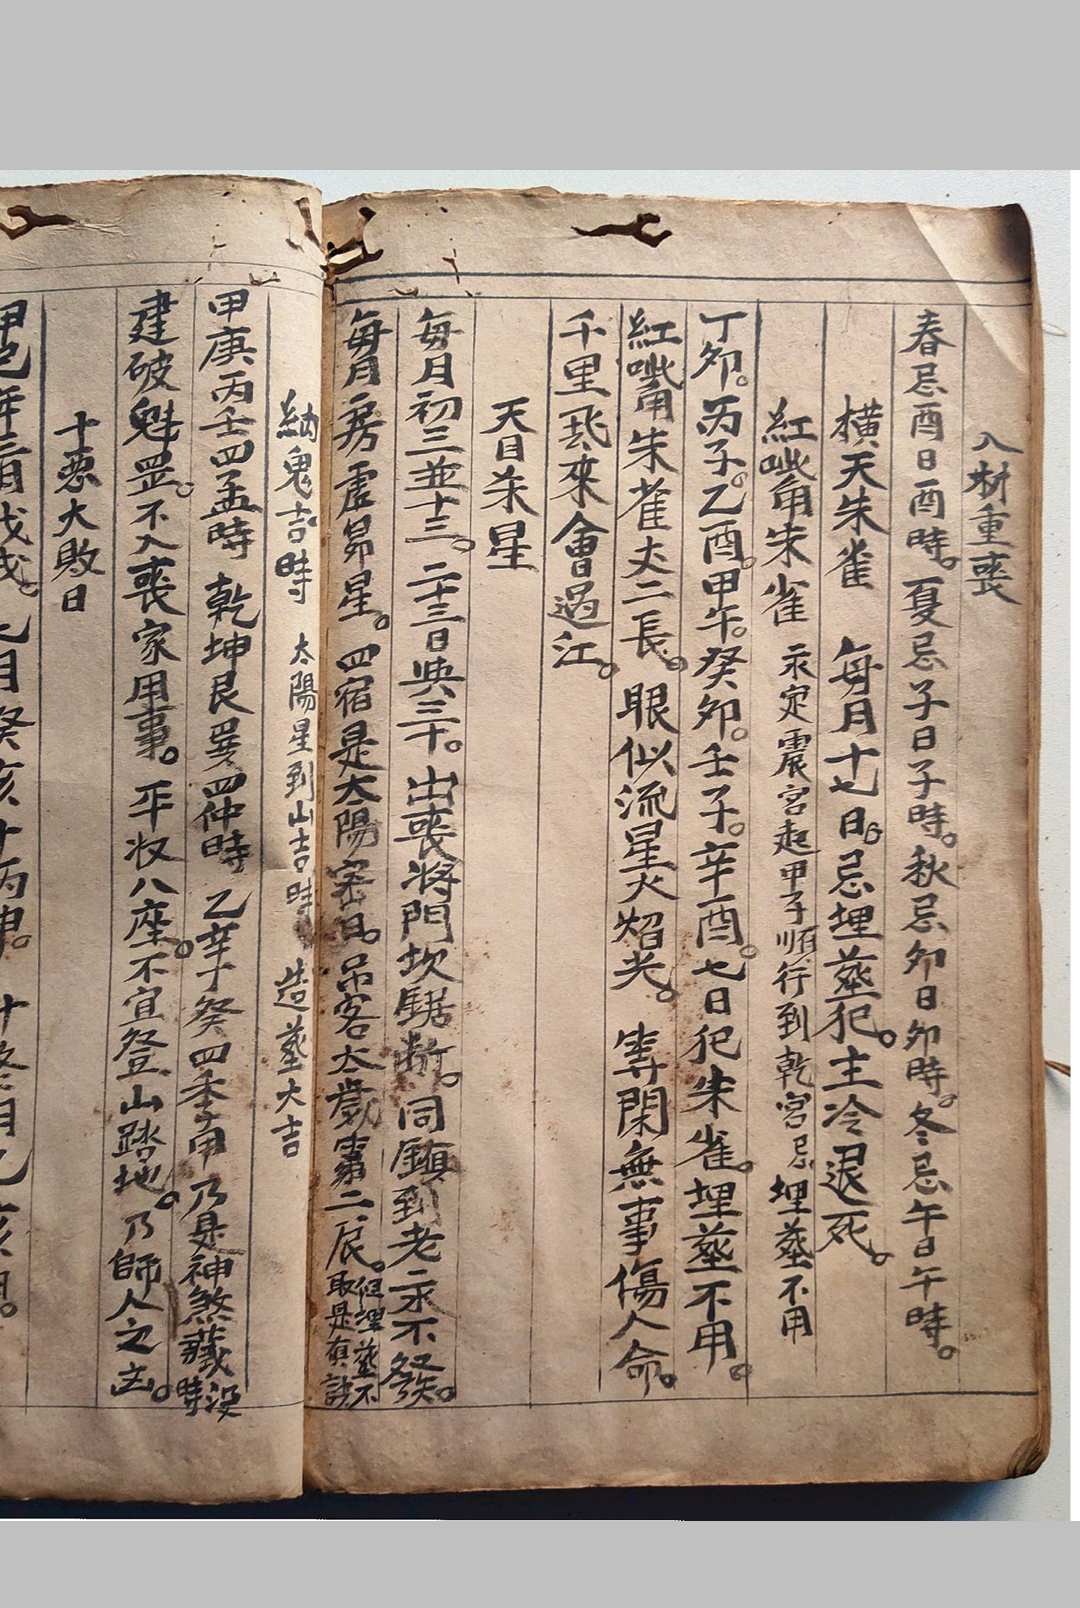 入材重喪
春忌酉日酉時。夏忌子日子時。秋忌卯日卯時。冬忌午日午時。
橫天朱雀 每月十七日。忌埋葬犯。主冷退死。
紅嘴朱雀 永定震宮起甲子順行到乾宮忌埋葬不用
丁卯。丙子。乙酉。甲午。癸卯。壬子。辛酉。七日犯朱雀。埋葬不用。
紅嘴朱雀丈二長。眼似流星火焰光。專閑無事傷人命。
千里飛來會過江。
天目杀星
每月初三並十三。二十三日與三十。出喪將門坎鋸斷。同鎮到老永不發。
每月房虛昴星。四宿是太陽密日。吊客太歲 二辰。但埋葬不取是真訣
納鬼吉時 太陽星到山吉時 造葬大吉
甲庚丙壬四孟時 乾坤艮巽四仲時 乙辛丁癸四季用 乃是神煞藏沒時
建破魁罡。不入喪家用事。平收八座。不宜登山踏地。乃師人之 。
十惡大敗日
甲己年三月戊戌。七月癸亥 十月丙申。十 月 亥日。